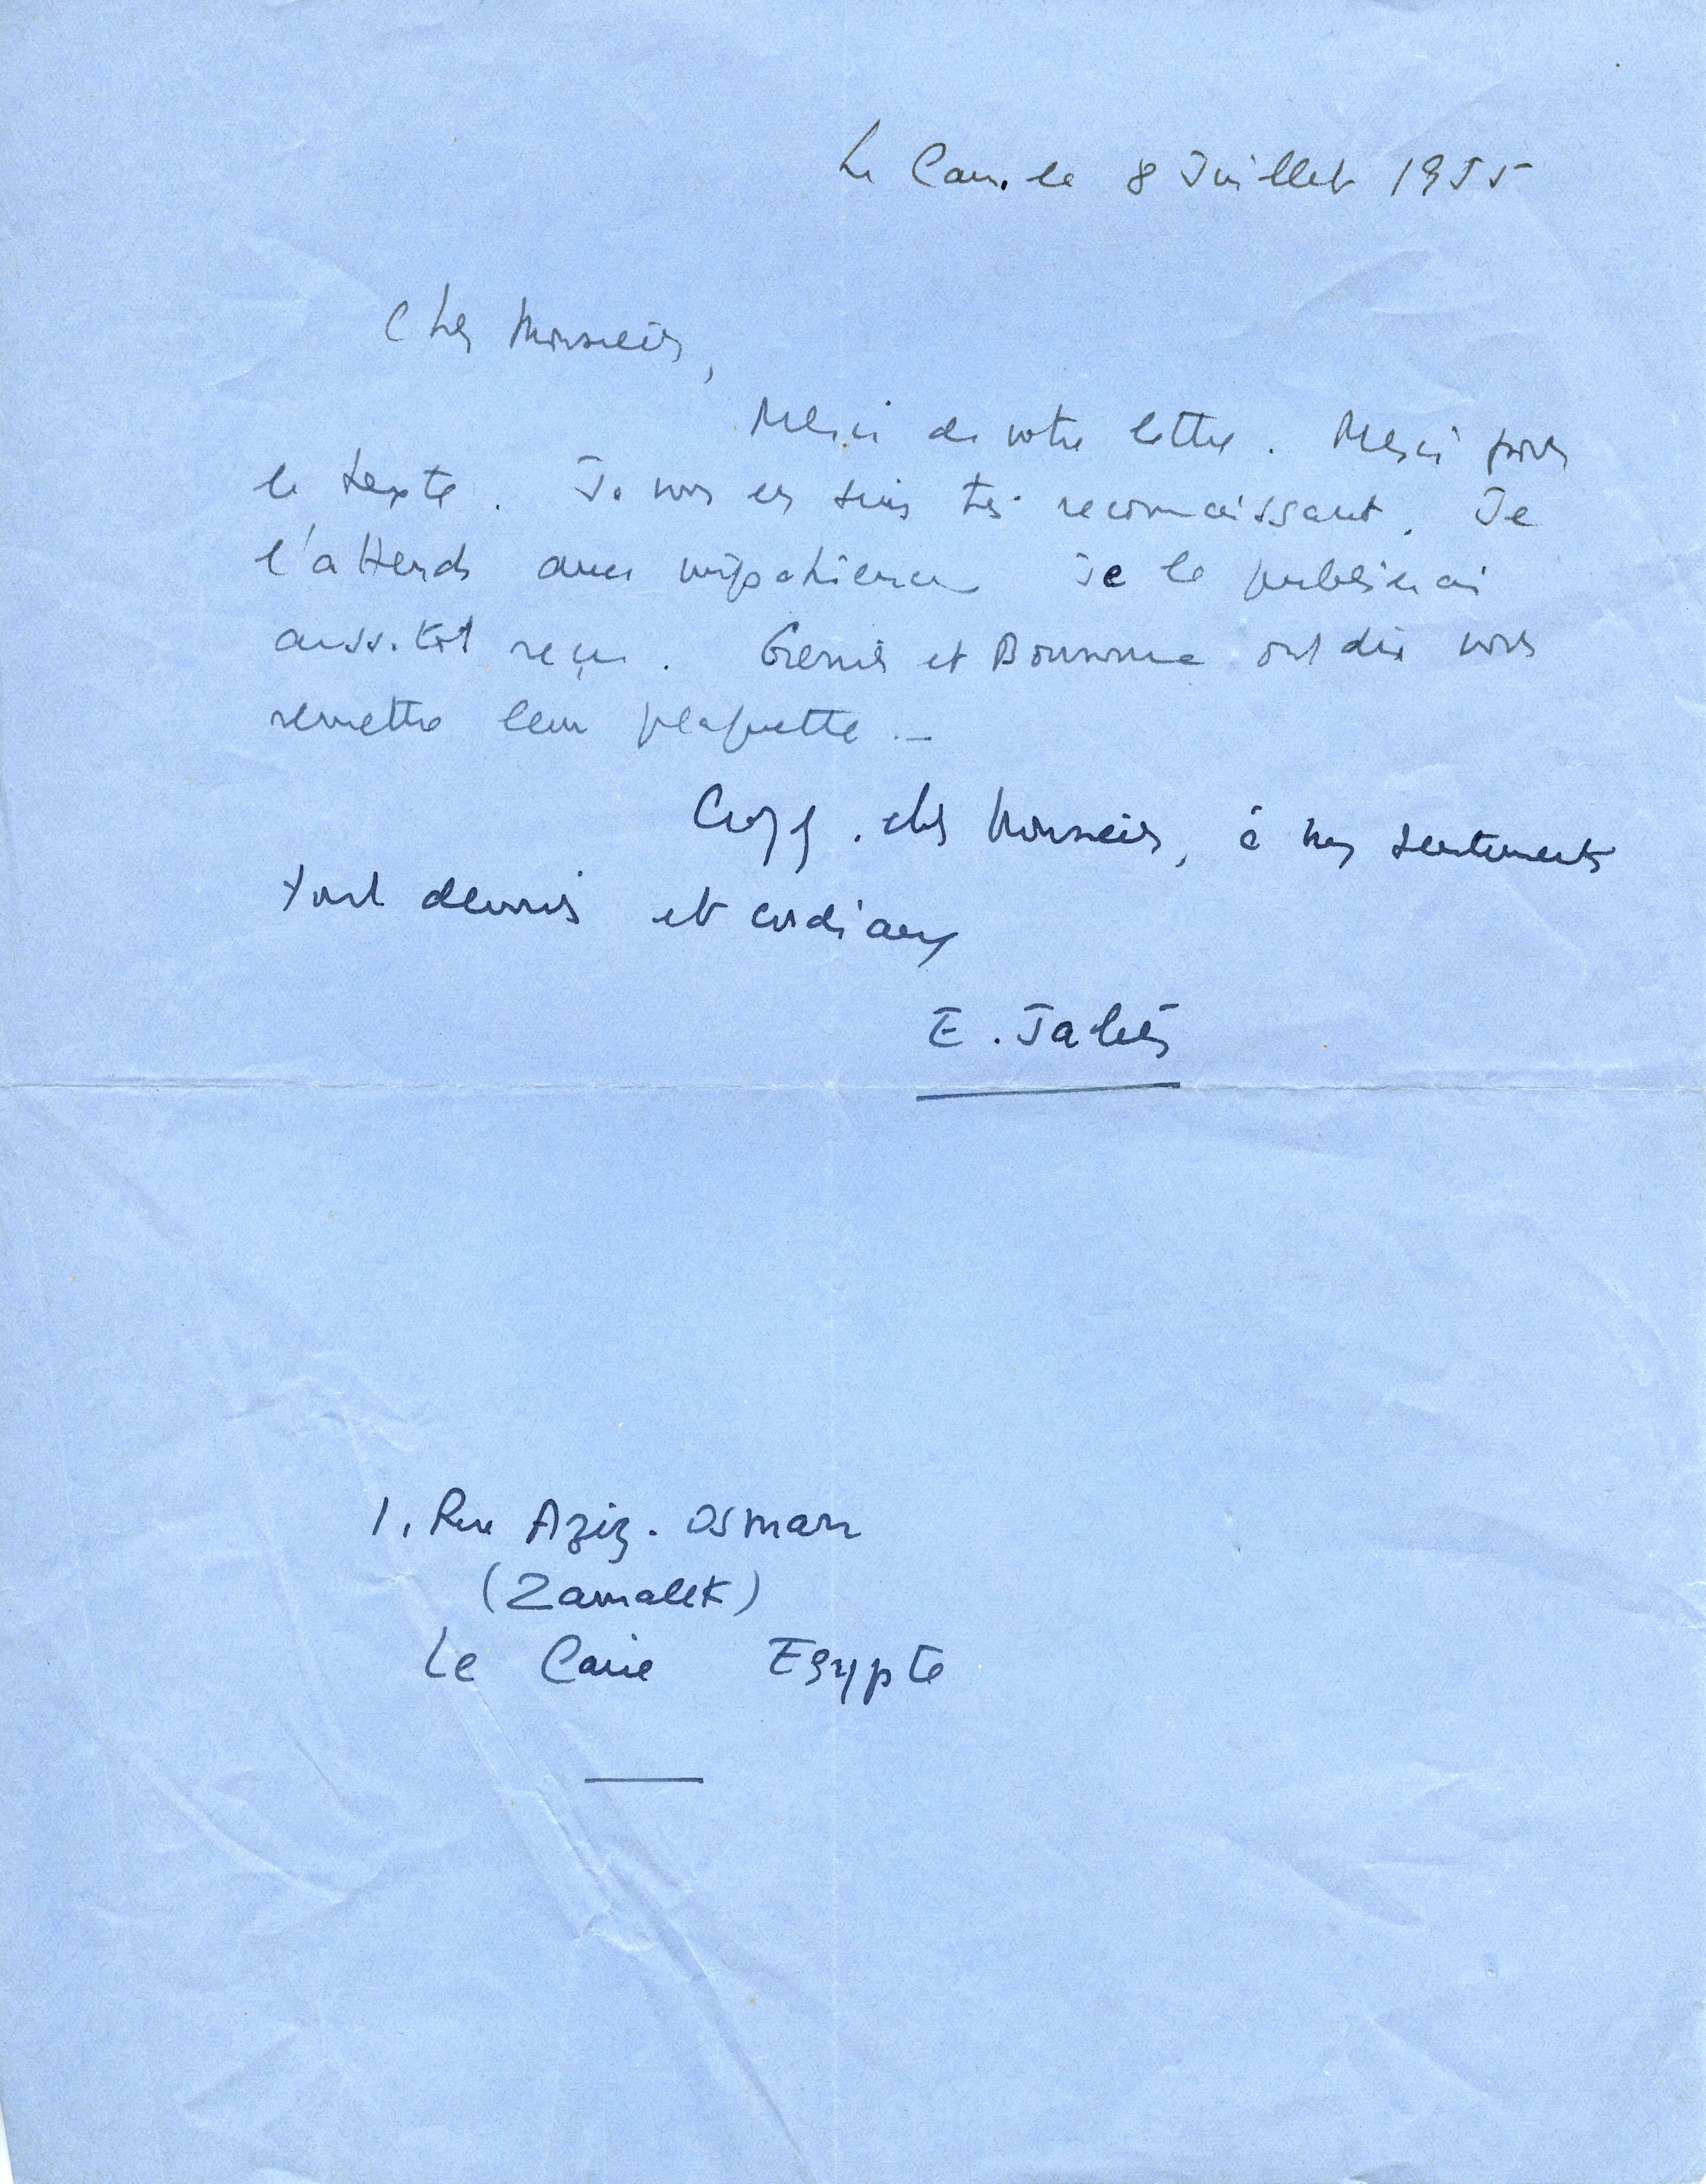 Le Caire le 8 Juillet 1955
Cher Monsieur,
Merci de votre lettre. Merci pour
le texte. Je vous en suis très reconnaissant. Je
l'attends avec impatience Je le publierai
aussitôt reçu. Grenier et Bonnome ont dû vous
remettre leur plaquette._
Croyez, cher Monsieur, à mes sentiments
tout dévoués et cordiaux
E. Jabès
1, Rue Aziz-Osman
(Zamalek)
Le Caire Egypte